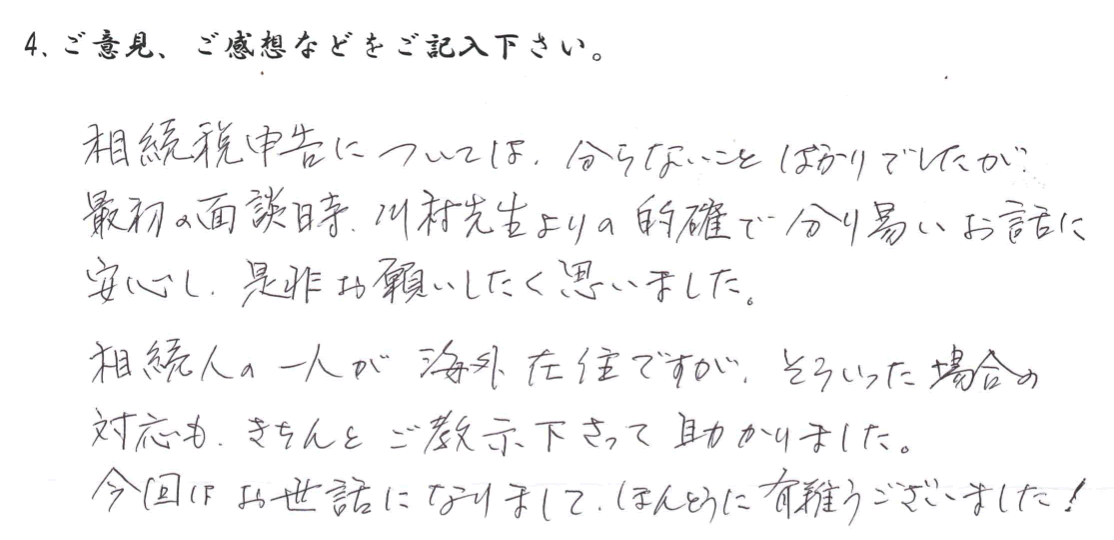 4、ご意見、ご感想などをご記入下さい。
相続税申告については、分らないことばかりでしたが、
最初の面談時、川村先生よりの的確で分り易いお話に
安心し、是非お願いしたく思いました。
相続人の一人が海外在住ですが、そういった場合の
対応も、きちんとご教示下さって助かりました。
今回はお世話になりまして、ほんとうに有難うございました!